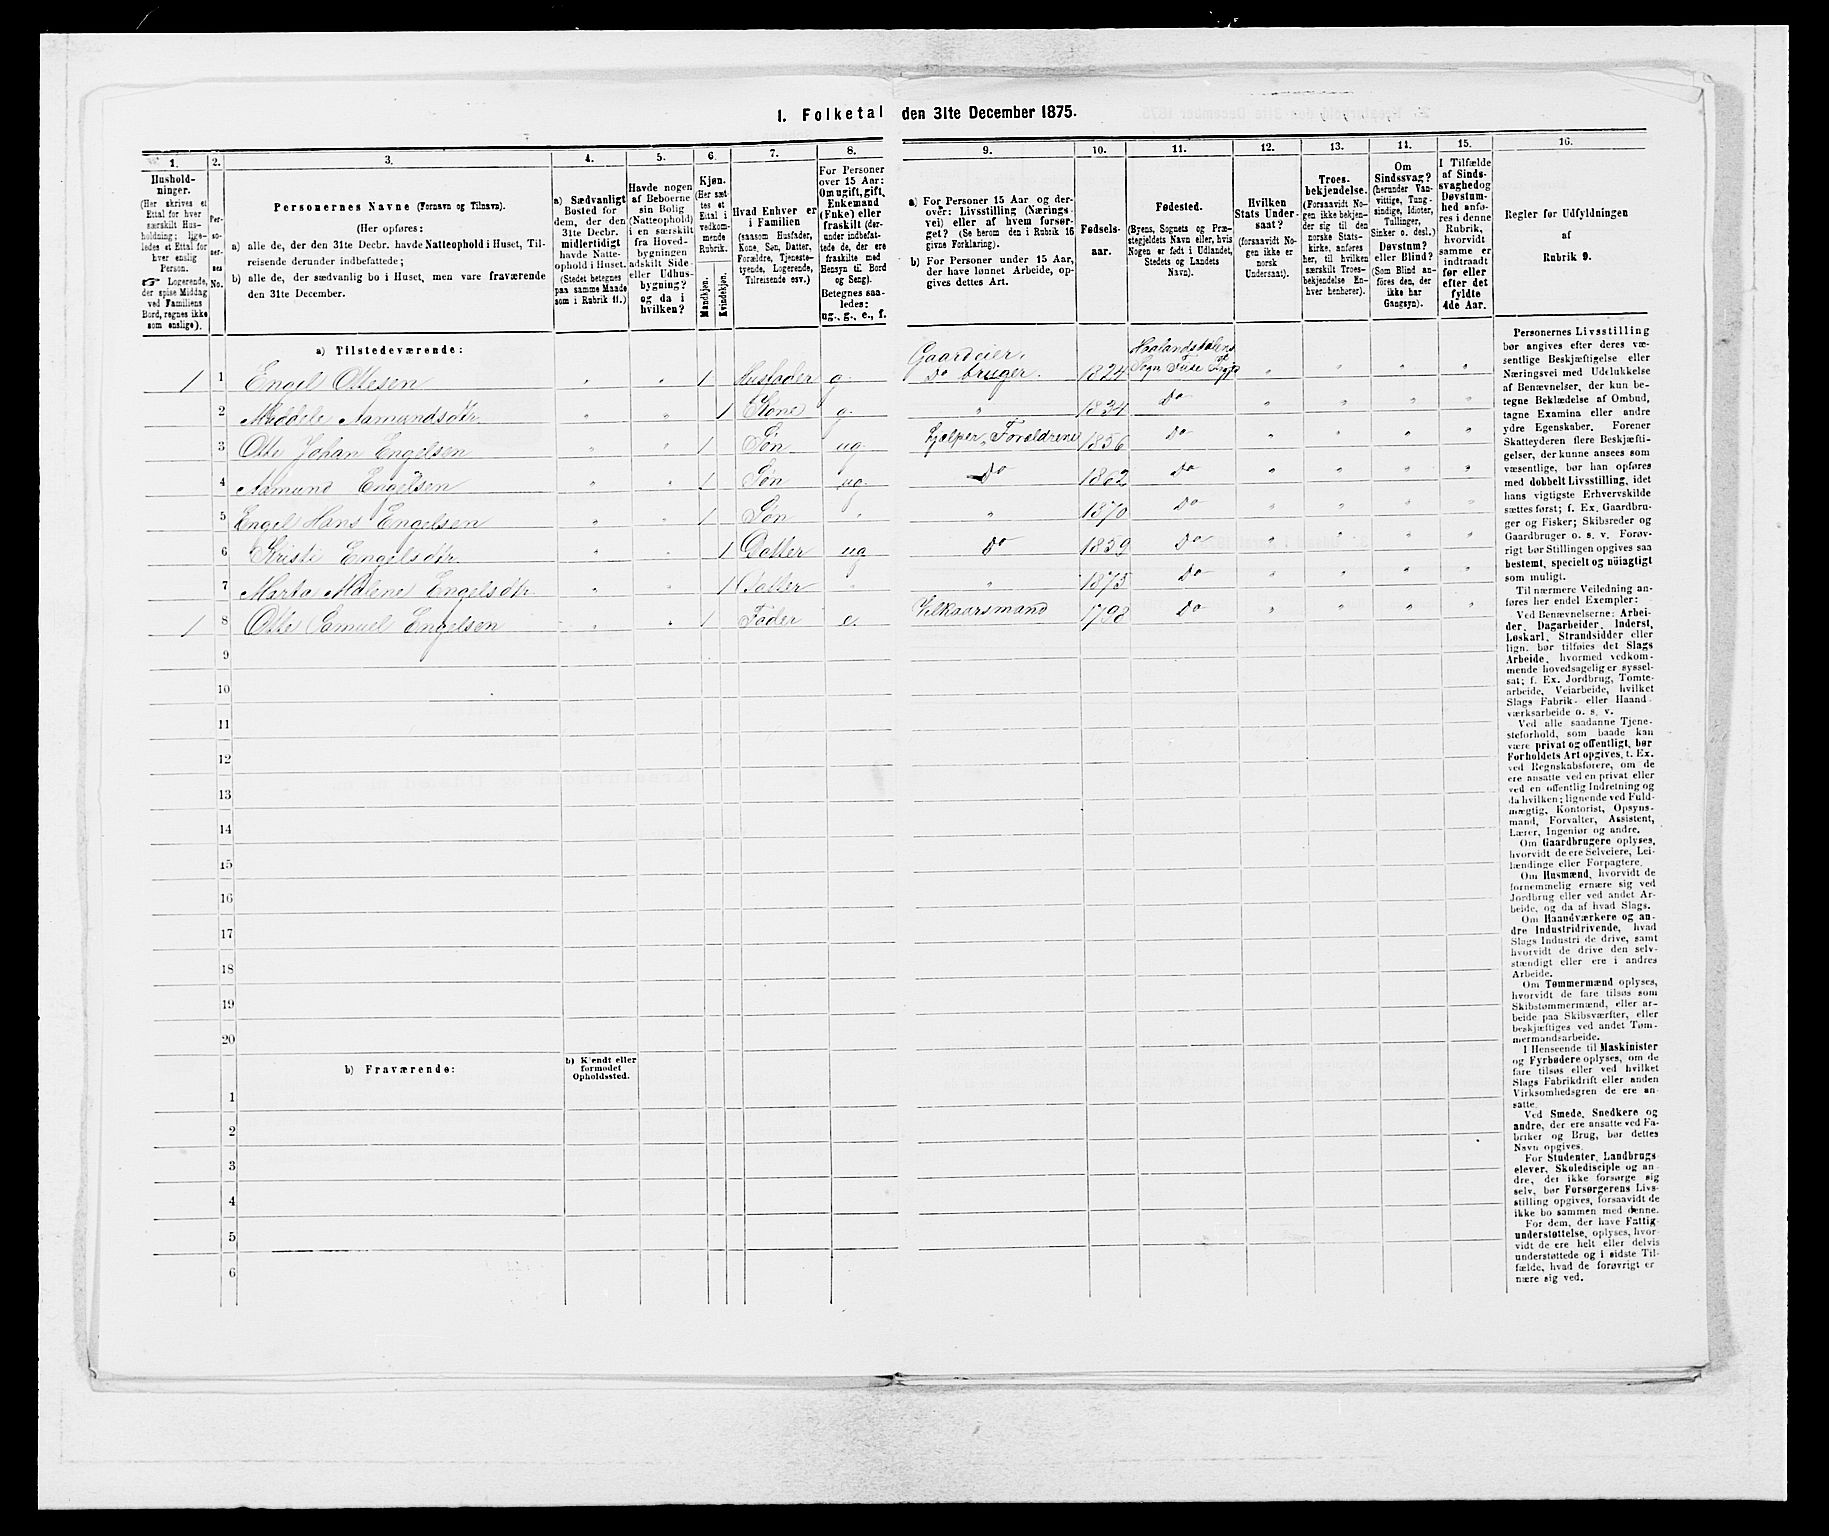 1. Folketal den 31te December 1875.
1. 2. 3. 4. 5. 6. 7. 8. 9. 10. 11. 12. 13. 14. 15. 16.
Hushold-
ninger.
(Her skrives et
Ettal for hver
særskilt Hus-
holdning; lige-
ledes et Ettal for
hver enslig
Person.
☞ Logerende,
der spise Middag
ved Familiens
Bord, regnes ikke
som enslige).
Per-
so-
ner-
nes
No.
Personernes Navne (Fornavn og Tilnavn).
(Her opføres:
a) alle de, der den 31te Decbr. havde Natteophold i Huset, Til-
reisende derunder indbefattede;
b) alle de, der sædvanlig bo i Huset, men vare fraværende
den 31te December.
a) Sædvanligt
Bosted for
dem, der den
31te Decbr.
midlertidigt
havde Natte-
ophold i Huset.
(Stedet betegnes
paa samme Maade
som i Rubrik 11.)
Havde nogen
af Beboerne
sin Bolig
(Natteophold)
i en særskilt
fra Hoved-
bygningen
adskilt Side-
eller Udhus-
bygning?
og da i
hvilken?
Kjøn.
(Her sæt-
tes et
Ettal i
vedkom-
mende
Rubrik.
Mandkjøn.
Kvindekjøn.
Hvad Enhver er
i Familien
(saasom Husfader,
Kone, Søn, Datter,
Forældre, Tjeneste-
tyende, Logerende,
Tilreisende osv.)
For Personer
over 15 Aar:
Om ugift, gift,
Enkemand
(Enke) eller
fraskilt (der-
under indbefat-
tede de, der ere
fraskilte med
Hensyn til Bord
og Seng).
Betegnes saa-
ledes:
ug., g., e., f.
a) For Personer 15 Aar og der-
over: Livsstilling (Nærings-
vei) eller af hvem forsør-
get? (Se herom den i Rubrik 16
givne Forklaring).
b) For Personer under 15 Aar,
der have lønnet Arbeide, op-
gives dettes Art.
Fødsels-
aar.
Fødested.
(Byens, Sognets og Præ-
stegjeldets Navn eller, hvis
Nogen er født i Udlandet,
Stedets og Landets
Navn).
Hvilken
Stats Under-
saat?
(forsaavidt No-
gen ikke er
norsk
Undersaat).
Troes-
bekjendelse.
(Forsaavidt No-
gen ikke bekjen-
der sig til den
norske Stats-
kirke, anføres
her, til hvilken
særskilt Troes-
bekjendelse En-
hver henhører).
Om
Sindssvag?
(herunder Van-
vittige, Tung-
sindige, Idioter,
Tullinger,
Sinker o. desl.)
Døvstum?
eller Blind?
(Som Blind an-
føres den, der
ikke har
Gangsyn).
I Tilfælde
af Sinds-
svaghed og
Døvstum-
hed anfø-
res i denne
Rubrik,
hvorvidt
samme er
indtraadt
før eller
efter det
fyldte
4de Aar.
Regler for Udfyldningen
af
Rubrik 9.
a) Tilstedeværende:
1 1 Engel Ottesen " " 1 Husfader g. Gaardeier. Do bruger. 1824 Haalandsdalens Sogn Fuse
2 Aamundsdtr. " " 1 Kone g. " 1834 Do " " " "
3 Otte Johan Engelsen " " 1 Søn ug. hjelper Forældrene 1856 Do " " " "
4 Aamund Engelsen " " 1 Søn ug. Do 1862 Do " " " "
5 Engel Hans Engelsen " " 1 Søn " " 1870 Do " " " "
6 Kristi Engelsdtr. " " 1 Datter ug Do 1859 Do " " " "
7 Marta Engelsdtr. " " 1 Datter " " 1875 Do " " " "
1 8 Otte Samuel Engelsen " " 1 Fader e. Vilkaarsmand 1798 Do " " " "
9
10
11
12
13
14
15
16
17
18
19
20
b) Fraværende:
b) Kjendt eller
formodet
Opholdssted.
1
2
3
4
5
6
Personernes Livsstilling
bør angives efter deres væ-
sentlige Beskjæftigelse eller
Næringsvei med Udelukkelse
af Benævnelser, der kun be-
tegne Beklædelse af Ombud,
tagne Examina eller andre
ydre Egenskaber. Forener
Skatteyderen flere Beskjæfti-
gelser, der kunne ansees som
væsentlige, bør han opføres
med dobbelt Livsstilling, idet
hans vigtigste Erhvervskilde
sættes først; f. Ex. Gaardbru-
ger og Fisker; Skibsreder og
Gaardbruger o. s. v. Forøv-
rigt bør Stillingen opgives saa
bestemt, specielt og nöiagtigt
som muligt.
Til nærmere Veiledning an-
føres her endel Exempler:
Ved Benævnelserne: Arbei-
der, Dagarbeider, Inderst,
Løskarl, Strandsidder eller
lign. bør tilføies det Slags
Arbeide, hvormed vedkom-
mende hovedsagelig er syssel-
sat; f. Ex. Jordbrug, Tomte-
arbeide, Veiarbeide, hvilket
Slags Fabrik- eller Haand-
værksarbeide o. s. v.
Ved alle saadanne Tjene-
steforhold, som baade kan
være privat og offentligt, bør
Forholdets Art opgives, t. Ex.
ved Regnskabsførere, om de
ere ansatte ved en privat eller
ved en offentlig Indretning og
da hvilken; lignende ved Fuld-
mægtig, Kontorist, Opsyns-
mand, Forvalter, Assistent,
Lærer, Ingeniør og andre.
Om Gaardbrugere oplyses,
hvorvidt de ere Selveiere, Lei-
lændinge eller Forpagtere.
Om Husmænd, hvorvidt de
fornemmelig ernære sig ved
Jordbrug eller ved andet Ar-
beide, og da af hvad Slags.
Om Haandværkere og an-
dre Industridrivende, hvad
Slags Industri de drive, samt
hvorvidt de drive den selv-
stændigt eller ere i andres
Arbeide.
Om Tømmermænd oplyses,
hvorvidt de fare tilsøs som
Skibstømmermænd, eller ar-
beide paa Skibsværfter, eller
beskjæftiges ved andet Tøm-
mermandsarbeide.
I Henseende til Maskinister
og Fyrbødere oplyses, om de
fare tilsøs eller ved hvilket
Slags Fabrikdrift eller anden
Virksomhedsgren de ere an-
satte.
Ved Smede, Snedkere og
andre, der ere ansatte ved Fa-
briker og Brug, bør dettes
Navn opgives.
For Studenter, Landbrugs-
elever, Skoledisciple og an-
dre, der ikke forsørge sig
selv, bør Forsørgerens Livs-
stilling opgives, forsaavidt de
ikke bo sammen med denne.
For dem, der have Fattig-
understøttelse, oplyses, hvor-
vidt de ere helt eller delvis
understøttede og i sidste Til-
fælde, hvad de forøvrigt er
nære sig ved.